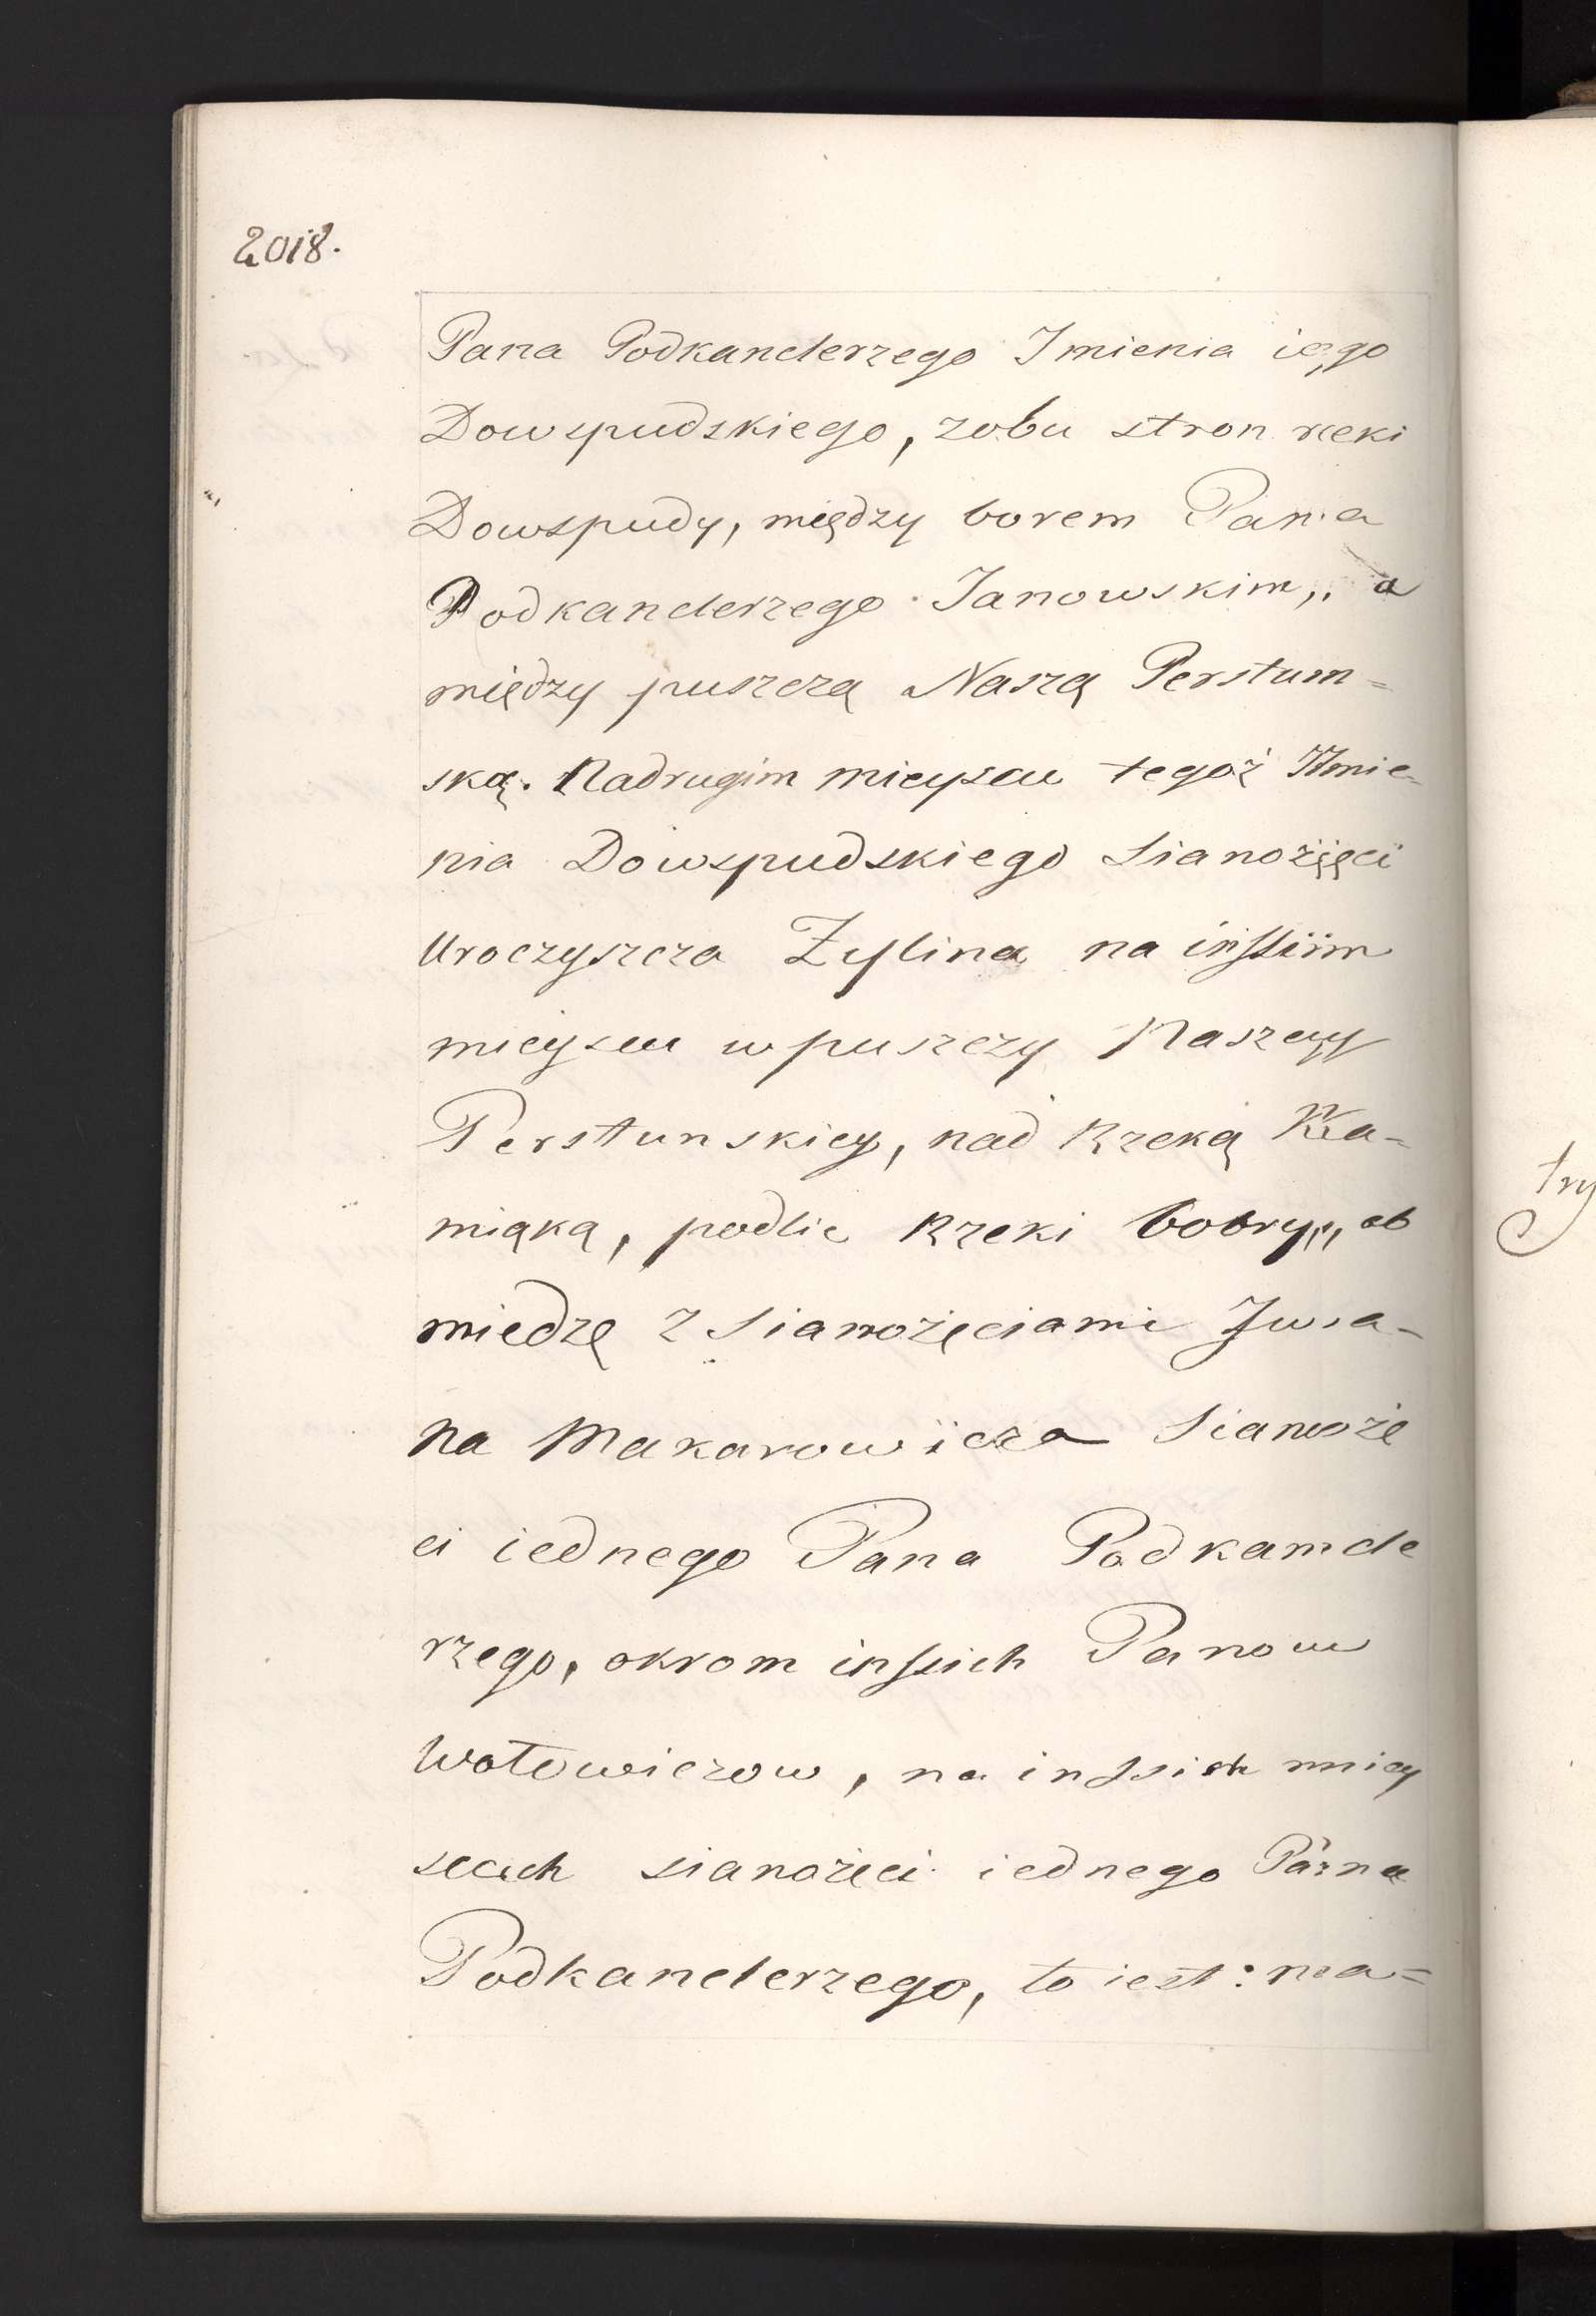 2018.
Pana Podkanclerzego Imienia iego
Dowspudskiego, zobu stron rzeki
Dowspudy, między borem Pana
Podkanclerzego Janowskim, a
między puszczą Naszą Perstum=
ską. Nadrugim mieyscu tegoż Imie-
nia Dowspudskiego Sianożęci
Uroczyszcza Zylina na inszim
mieyscu wpuszczy Naszey
Perstunskiey, nad Rzeką Ka-
mięką, podlie Rzeki bobry, ob
miedzę z Sianożęciami Iwa-
na Makarowicza Sianożę
ci iednego Pana Podkancle
rzego, okrom inszich Panow
Wołowiczow, na inszich miey
scach sianożęci iednego Pana
Podkanclerzego, to iest: na=
try